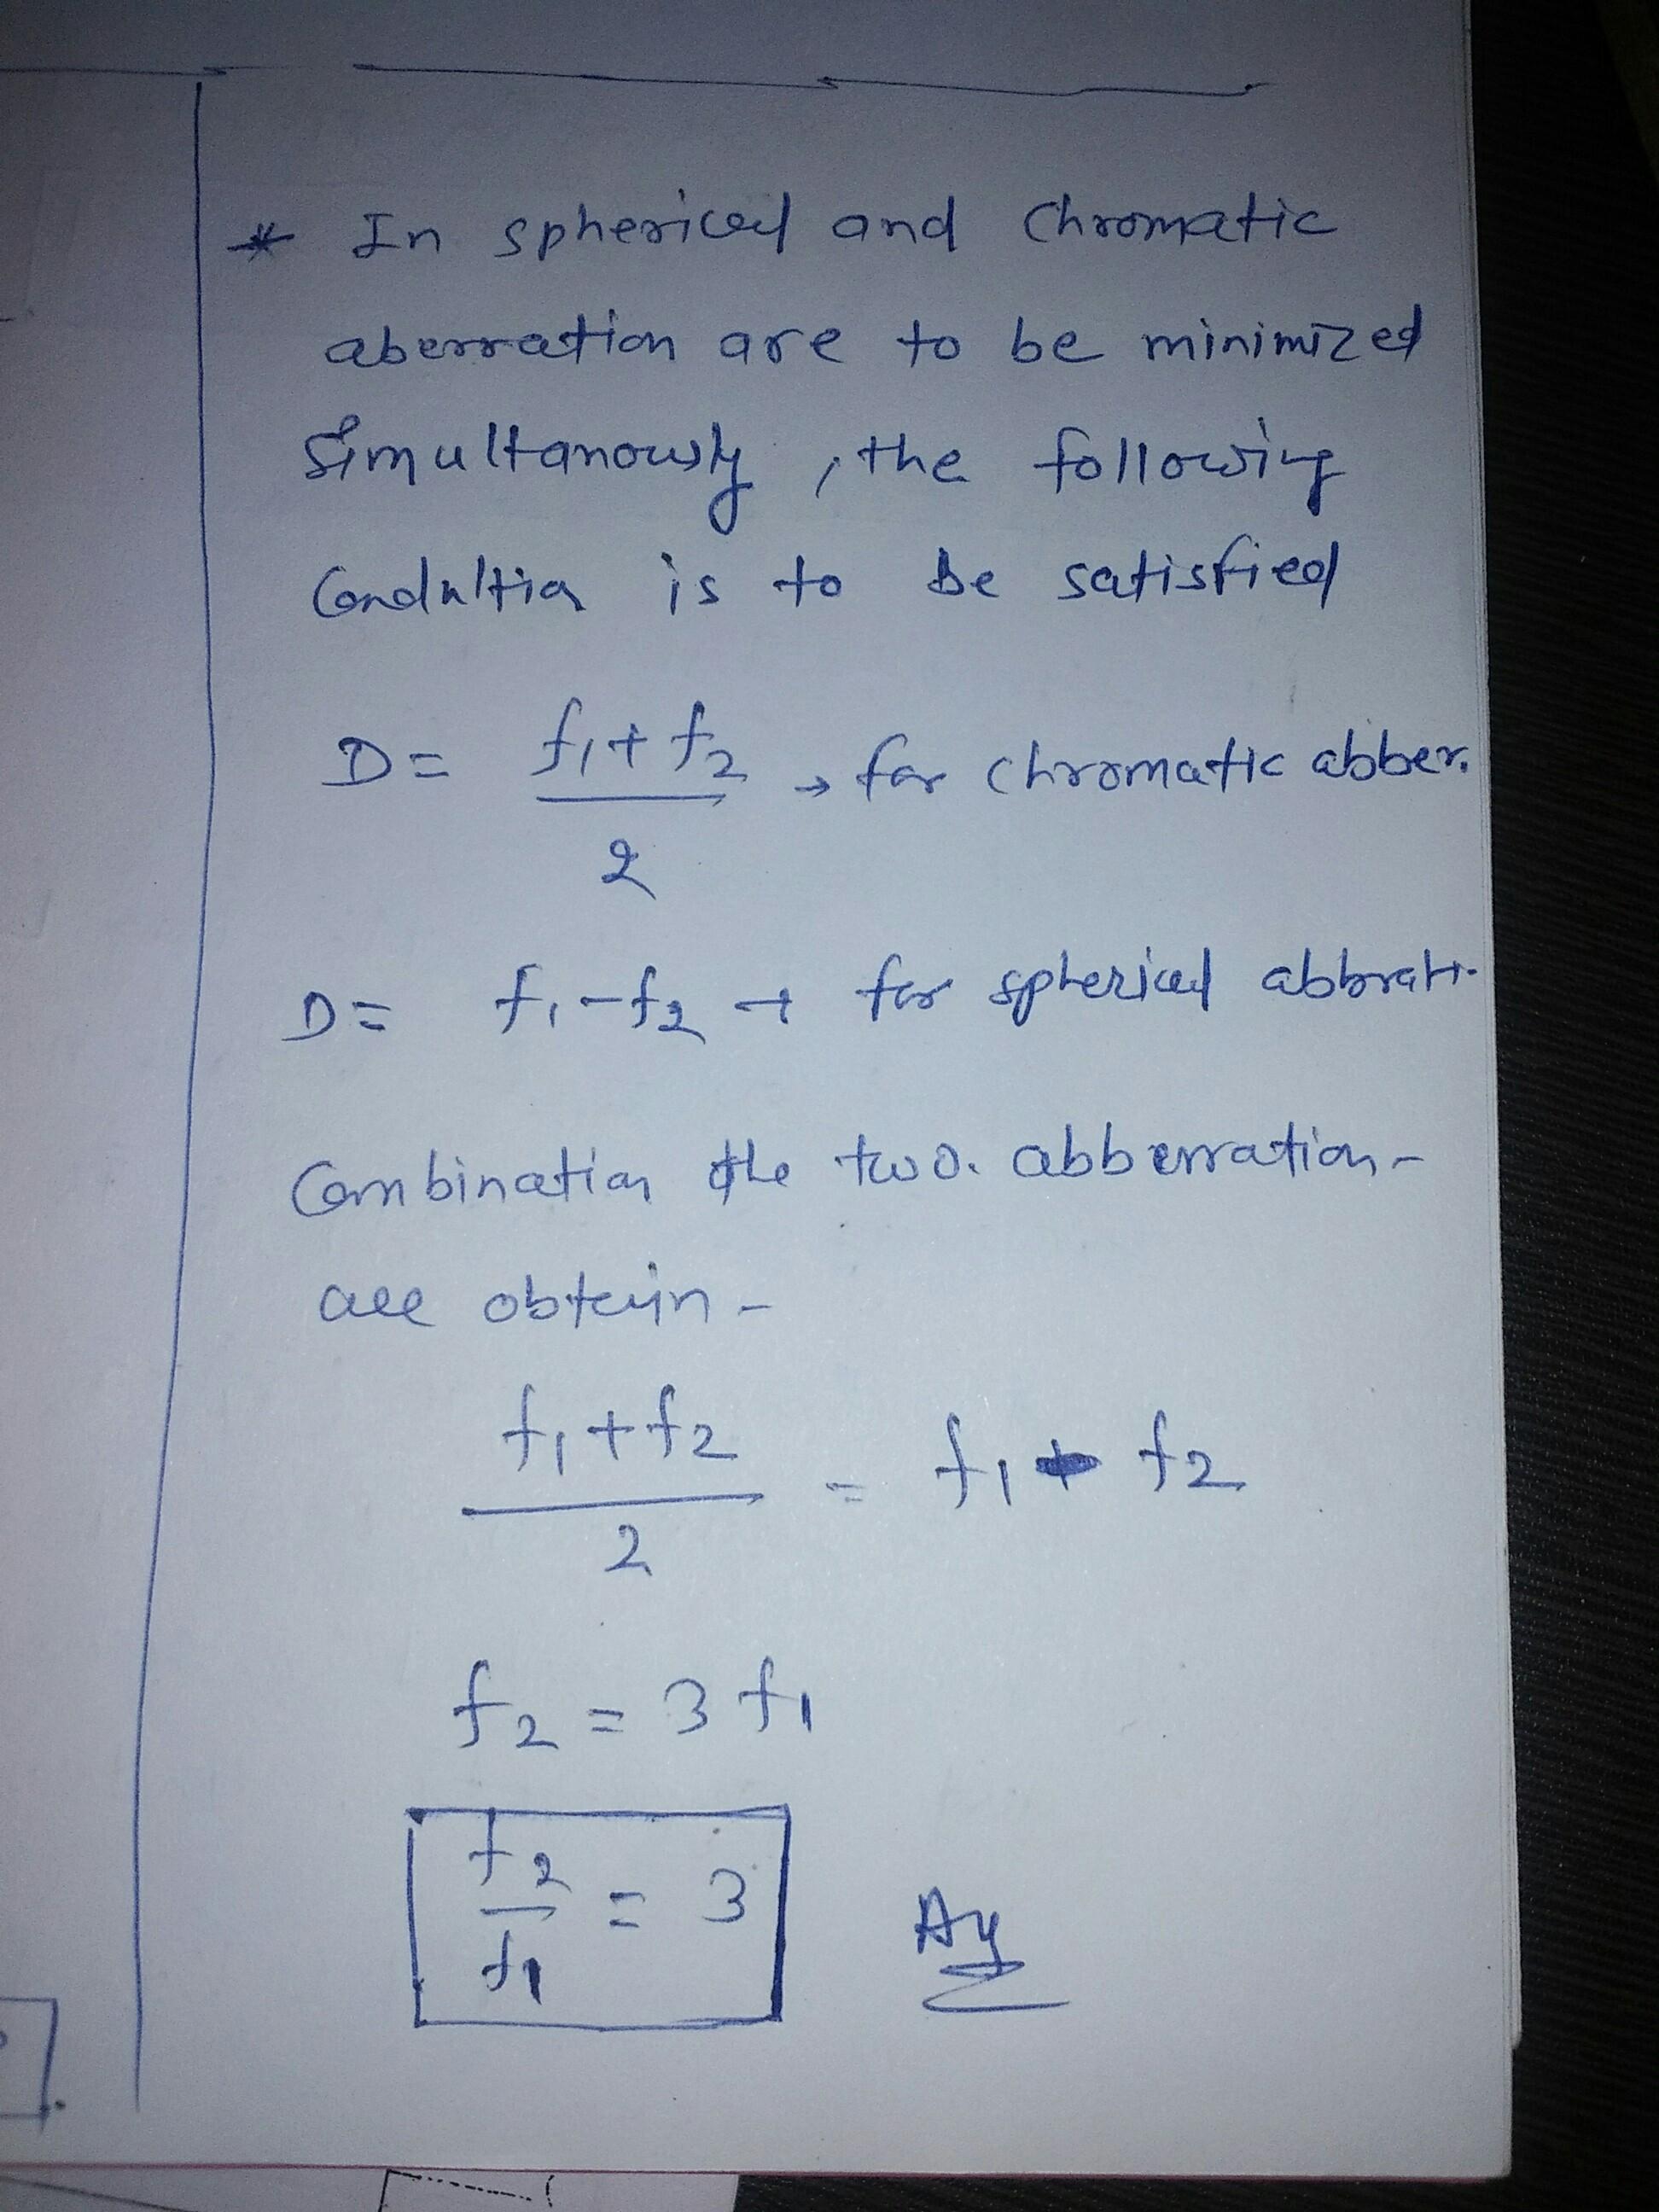 * In spherical and Chromatic
aberration are to be minimized
Simultanously, the following
Condultion is to be satisfied
D = f₁ + f₂ / 2 → for chromatic abber.
D = f₁ - f₂ → for spherical abbrati.
Combination the two. abberration -
are obtain -
f₁ + f₂ / 2 = f₁ - f₂
f₂ = 3 f₁
f₂ / f₁ = 3